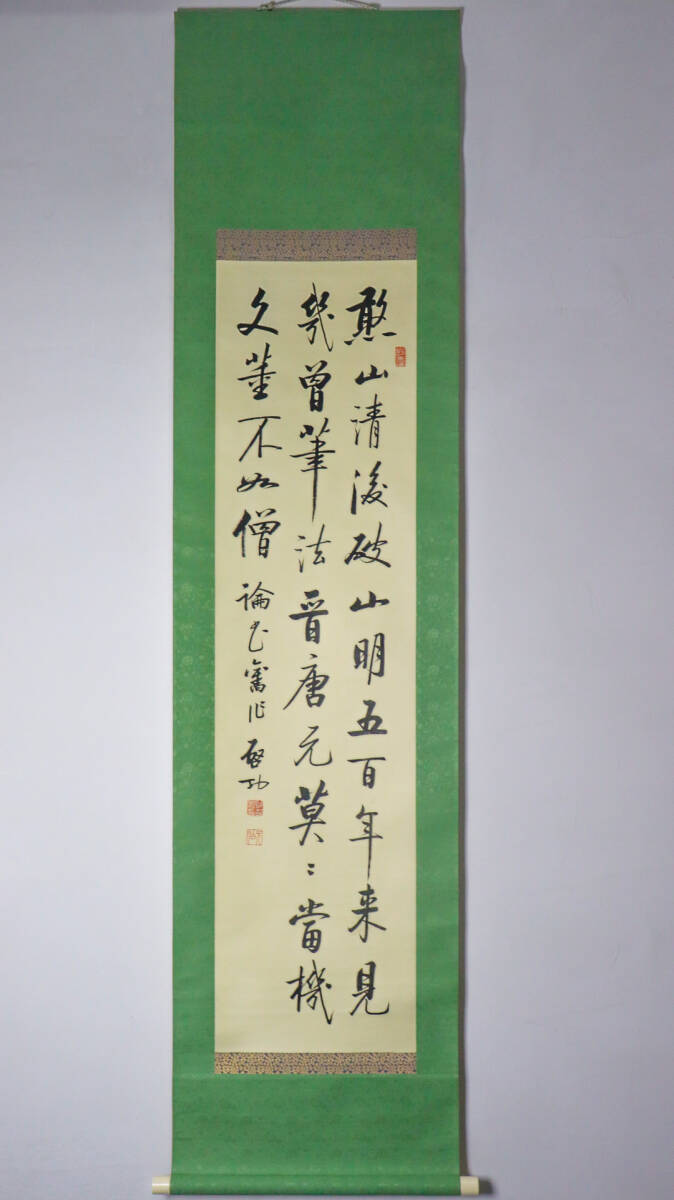 憨山清後破山明五百年来見
幾曾筆法晉唐元莫二當機
文董不如僧 論書舊作 啓功